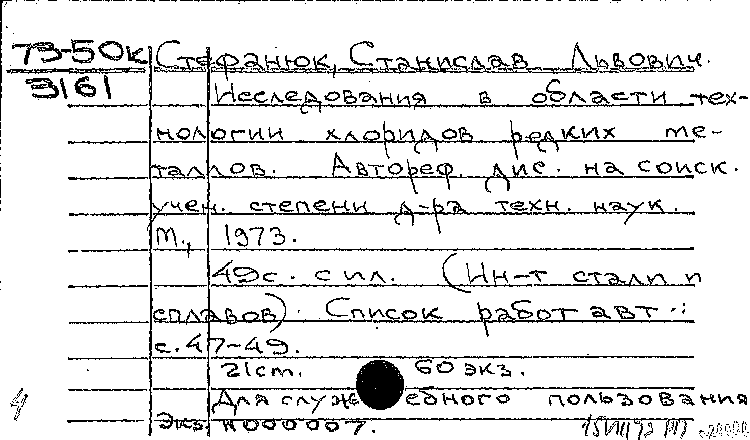 73-50к Стефанюк, Станислав Львович.
3161
Исследования в области тех-
нологии хлоридов редких ме-
таллов. Автореф. дис. на соиск.
учен. степени д-ра техн. наук.
М., 1973.
49с. с ил. (Ин-т стали и
сплавов). Список работ авт.:
с. 47-49.
21см. 60 экз.
Для служебного пользования
Экз. N000007.